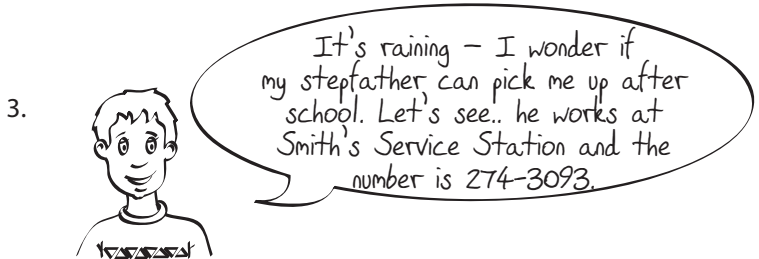 3.
It's raining – I wonder if
my stepfather can pick me up after
school. Let's see.. he works at
Smith's Service Station and the
number is 274-3093.